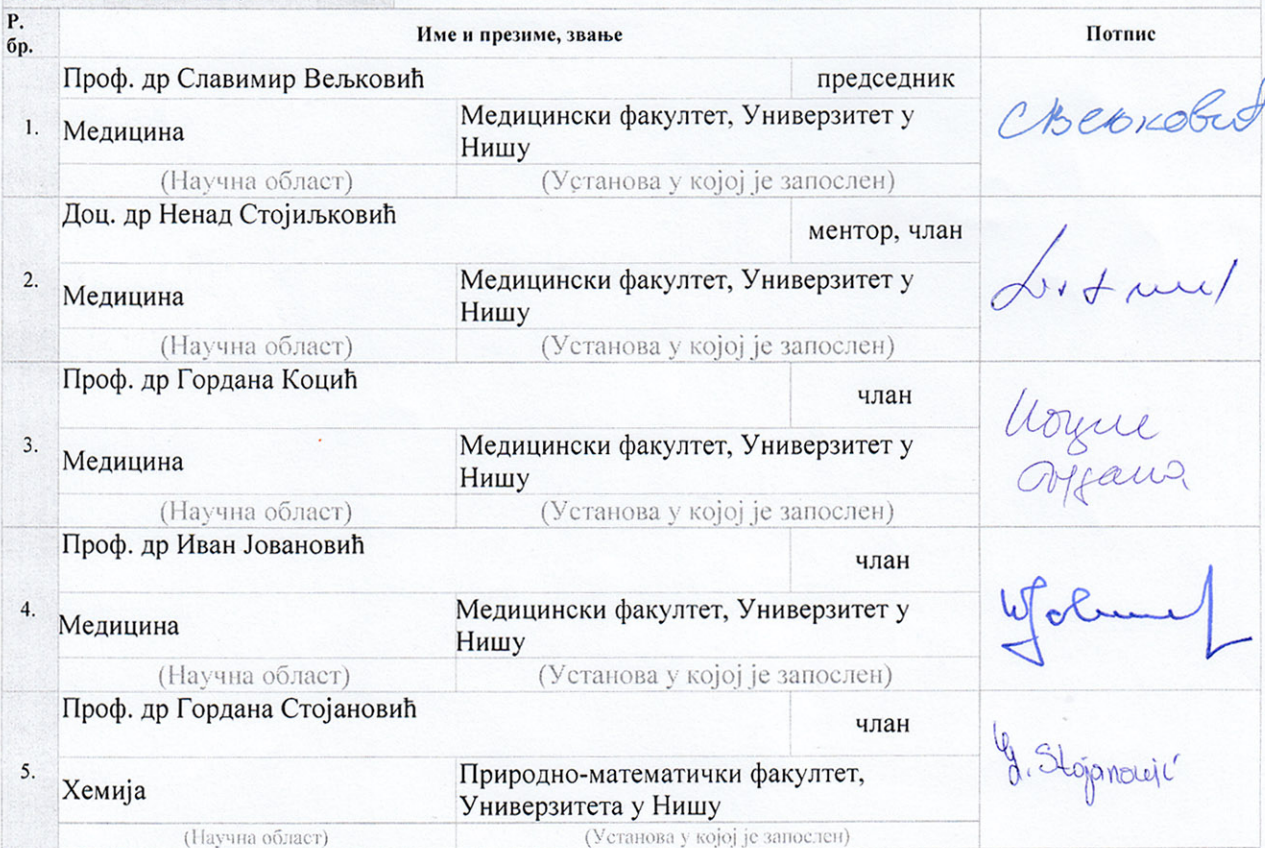 Р.
бр.
Име и презиме, звање
Потпис
Проф. др Славимир Вељковић
председник
1.
Медицина
Медицински факултет, Универзитет у
Нишу
СВељковић
(Научна област)
(Установа у којој је запослен)
Доц. др Ненад Стојиљковић
ментор, члан
2.
Медицина
Медицински факултет, Универзитет у
Нишу
(Научна област)
(Установа у којој је запослен)
Проф. др Гордана Коцић
члан
3.
Медицина
Медицински факултет, Универзитет у
Нишу
Коцић
Гордана
(Научна област)
(Установа у којој је запослен)
Проф. др Иван Јовановић
члан
4.
Медицина
Медицински факултет, Универзитет у
Нишу
(Научна област)
(Установа у којој је запослен)
Проф. др Гордана Стојановић
члан
5.
Хемија
Природно-математички факултет,
Универзитета у Нишу
G. Stojanović
(Научна област)
(Установа у којој је запослен)